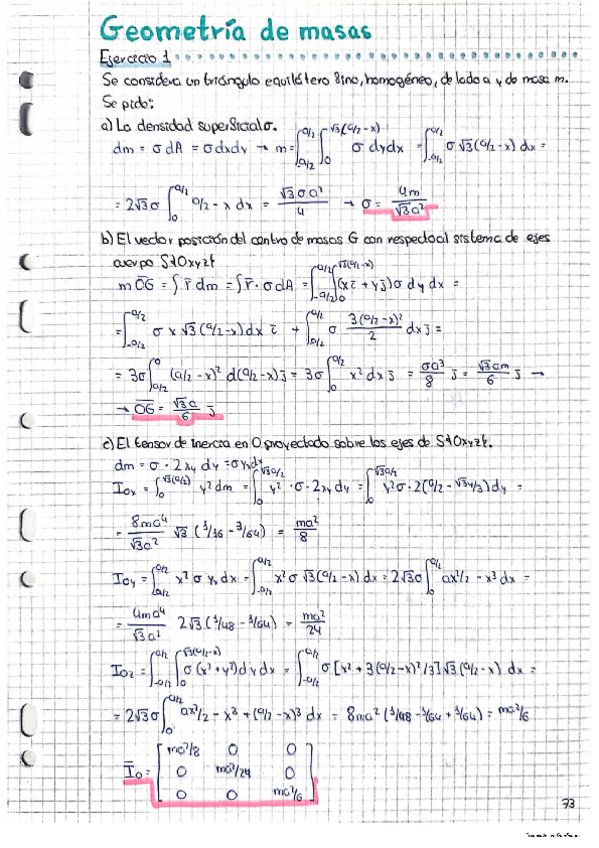 Geometría de masas
Ejercicio 1
Se considera un triángulo equilátero fino, homogéneo, de lado a y de masa m.
Se pide:
a) La densidad superficial σ.
dm = σ dA = σ dxdy → m = ∫_{-a/2}^{a/2} ∫_0^{√3(a/2-x)} σ dydx = ∫_{-a/2}^{a/2} σ √3 (a/2-x) dx =
= 2√3 σ ∫_0^{a/2} a/2 - x dx = √3 σ a²/4 → σ = 4m/√3a²
b) El vector posición del centro de masas G con respecto al sistema de ejes
cuerpo S1{Oxyz}
m OG = ∫ r dm = ∫ r · σ dA = ∫_{-a/2}^{a/2} ∫_0^{√3(a/2-x)} (x i + y j) σ dy dx =
= ∫_{-a/2}^{a/2} σ x √3 (a/2-x) dx i + ∫_{-a/2}^{a/2} σ 3(a/2-x)²/2 dx j =
= 3σ ∫_{a/2}^0 (a/2-x)² d(a/2-x) j = 3σ ∫_0^{a/2} x² dx j = σa³/8 j = √3am/6 j →
→ OG = √3a/6 j
c) El tensor de inercia en O proyectado sobre los ejes de S1{Oxyz}.
dm = σ · 2 xy dy = σ yx dx
Iox = ∫_0^{√3(a/2)} y² dm = ∫_0^{√3a/2} y² · σ · 2 xy dy = ∫_0^{√3a/2} y² σ · 2(a/2 - √3y/3) dy =
= 8ma⁴/√3a² √3 (1/16 - 3/64) = ma²/8
Ioy = ∫_{-a/2}^{a/2} x² σ yx dx = ∫_{-a/2}^{a/2} x² σ √3 (a/2-x) dx = 2√3σ ∫_0^{a/2} ax²/2 - x³ dx =
= 4ma⁴/√3a² 2√3 (1/48 - 1/64) = ma²/24
Ioz = ∫_{-a/2}^{a/2} ∫_0^{√3(a/2-x)} σ (x²+y²) dy dx = ∫_{-a/2}^{a/2} σ [x² + 3(a/2-x)²/3] √3 (a/2-x) dx =
= 2√3σ ∫_0^{a/2} ax²/2 - x³ + (a/2-x)³ dx = 8ma² (1/48 - 1/64 + 1/64) = ma²/6
ma²/8 0 0
Io = 0 ma²/24 0
0 0 ma²/6
73